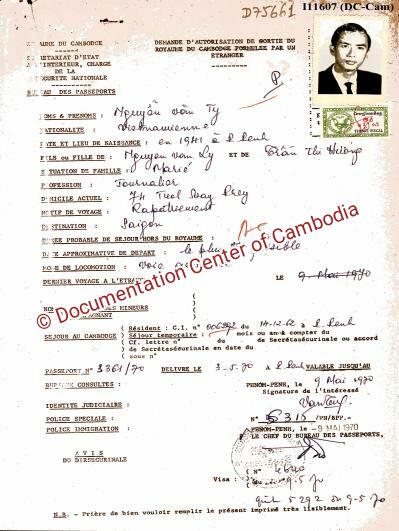 D75661
I11607 (DC-Cam)
ROYAUME DU CAMBODGE
DEMANDE D'AUTORISATION DE SORTIE DU
ROYAUME DU CAMBODGE FORMULEE PAR UN
ETRANGER
SECRETARIAT D'ETAT
A L'INTERIEUR, CHARGE
DE LA
SECURITE NATIONALE
BUREAU DES PASSEPORTS
NOMS & PRENOMS : Nguyễn văn Ty
NATIONALITE : Vietnamienne
DATE ET LIEU DE NAISSANCE : en 1941 à P. Penh
FILS ou FILLE DE : Nguyen van Ly ET DE Trần Thi
SITUATION DE FAMILLE : Marié
PROFESSION : Journalier
DOMICILE ACTUEL : 74 Tuol Svay Prey
MOTIF DE VOYAGE : Rapatriement
DESTINATION : Saigon
DUREE PROBABLE DE SEJOUR HORS DU ROYAUME : A.
DATE APPROXIMATIVE DE DEPART : le plus
MODE DE LOCOMOTION : Voie
DERNIER VOYAGE A L'ETRANGER LE 9 Mai 1970
DES MINEURS
SEJOUR AU CAMBODGE ( Résident : C.I. n° du 14-12-62 à P. Penh
( Séjour temporaire : mois ou an à compter du
( Cf. lettre n° du de Secrétasécurité ou accord
( de Secrétasécurite en date du
( sous n°
PASSEPORT N° 3361/70 DELIVRE LE 3-5-70 à P. Penh VALABLE JUSQU'AU
BUREAUX CONSULTES : PHNOM-PENH, le 9 Mai 1970
Signature de l'intéressé
IDENTITE JUDICIAIRE :
POLICE SPECIALE : N° 5315 /PN/BPP.-
POLICE IMMIGRATION : PHNOM-PENH, le -9 MAI 1970
LE CHEF DU BUREAU DES PASSEPORTS,
AVIS
DU DIRSECURINALE
Visa : 9-5-70
5292 9-5-70
N.B. - Prière de bien vouloir remplir le présent imprimé très lisiblement.
© Documentation Center of Cambodia